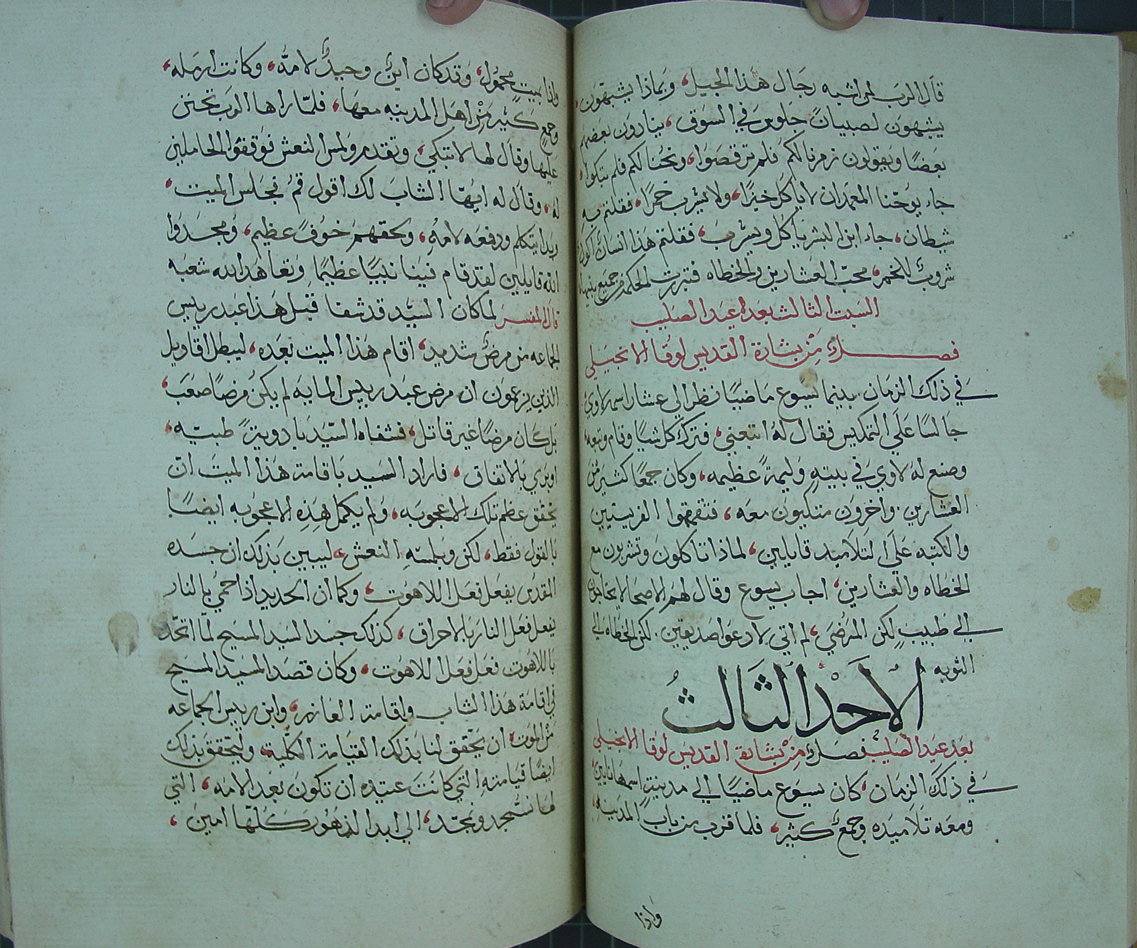 قال الرب لمن اشبه رجال هذا الجيل، وبماذا يشبهون،
يشبهون لصبيان جلوس في السوق، ينادون بعضهم
بعضا ويقولون زمرنا لكم فلم ترقصوا، ونحنا لكم فلم تبكوا،
جاء يوحنا المعمدان لا ياكل خبزا، ولا يشرب خمرا، فقلتم به
شيطان، جاء ابن البشر ياكل ويشرب، فقلتم هذا انسان اكول
شروب الخمر، محب العشارين والخطاه فتبررت الحكمه من جميع بنيها
السبت الثالث بعد عيد الصليب
فصل من بشارة القديس لوقا الانجيلي
في ذلك الزمان بينما يسوع ماضيا نظر الي عشار اسمه لاوي
جالسا علي التمكيس فقال له اتبعني، فترك كل شيا وقام وتبعه
وصنع له لاوي في بيته وليمة عظيمه، وكان جمعا كثير من
العشارين واخرون متكيون معه، فتقمقموا الفريسيين
والكتبه علي التلاميد قايلين، لماذا تاكلون وتشربون مع
الخطاه والعشارين، اجاب يسوع وقال لهم الاصحا لا يحتاجون
الي طبيب لكن المرضي، لم اتي لادعوا صديقين لكن الخطاه الي
التوبه
الاحد الثالث
بعد عيد الصليب فصل من بشارة القديس لوقا الانجيلي
في ذلك الزمان، كان يسوع ماضيا الي مدينة اسمها نايين،
ومعه تلاميده وجمع كثير، فلما قرب من باب المدينه،
واذا
واذا بميت محمول، وقد كان ابن وحيد لامه، وكانت ارمله،
وجمع كثير من اهل المدينه معها، فلما راها الرب تحنن
عليها وقال لها لا تبكي، وتقدم ولمس النعش فوقفوا الحاملين
له، وقال له ايها الشاب لك اقول قم فجلس الميت،
وبدا يتكلم ودفعه لامه، ولحقهم خوف عظيم، ومجدوا
الله قايلين لقد قام فينا نبيا عظيما وتعاهد الله شعبه
قال المفسر لما كان السيد قد شفا قبل هذا عبد رييس
الجماعه من مرض شديد، اقام هذا الميت بعده، لبطل اقاويل
الذين يزعمون ان مرض عبد رييس المايه لم يكن مرضا صعب،
بل كان مرضا غير قاتل، فشفاه السيد بادوية طبيه،
اوبري بالاتفاق، فاراد السيد باقامة هذا الميت ان
يحقق عظم تلك الاعجوبه، ولم يكمل هذه الاعجوبه ايضا
بالقول فقط، لكن وبلمسه النعش، ليبين بذلك ان جسده
المقدس يفعل فعل اللاهوت، وكما ان الحديد اذا حمي بالنار
يفعل فعل النار بالاحراق، كذلك جسد السيد المسيح لما اتحد
باللاهوت فعل فعل اللاهوت، وكان قصد السيد المسيح
في اقامة هذا الشاب واقامة العازر، وابن رييس الجماعه
من الموت، ان يحقق لنا بذلك القيامة الكليه، وليتحقق بذلك
ايضا قيامته التي كانت عتيده ان تكون بعد الامه، التي
لها نسجد ونمجد، الي ابد الدهور كلها امين،